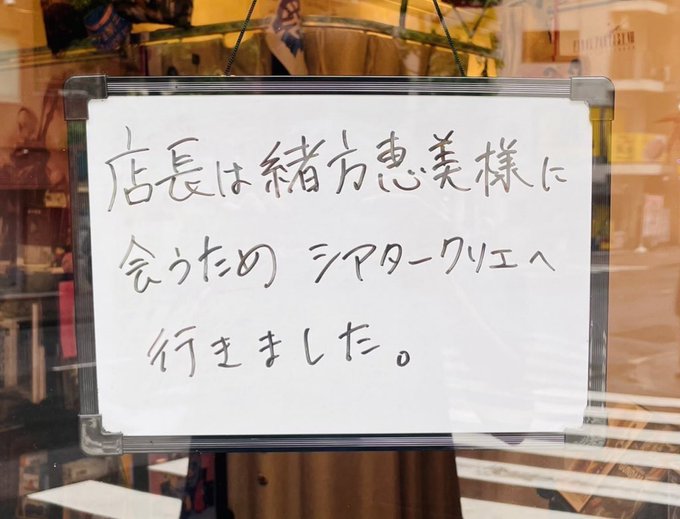 店長は緒方恵美様に
会うため シアタークリエへ
行きました。